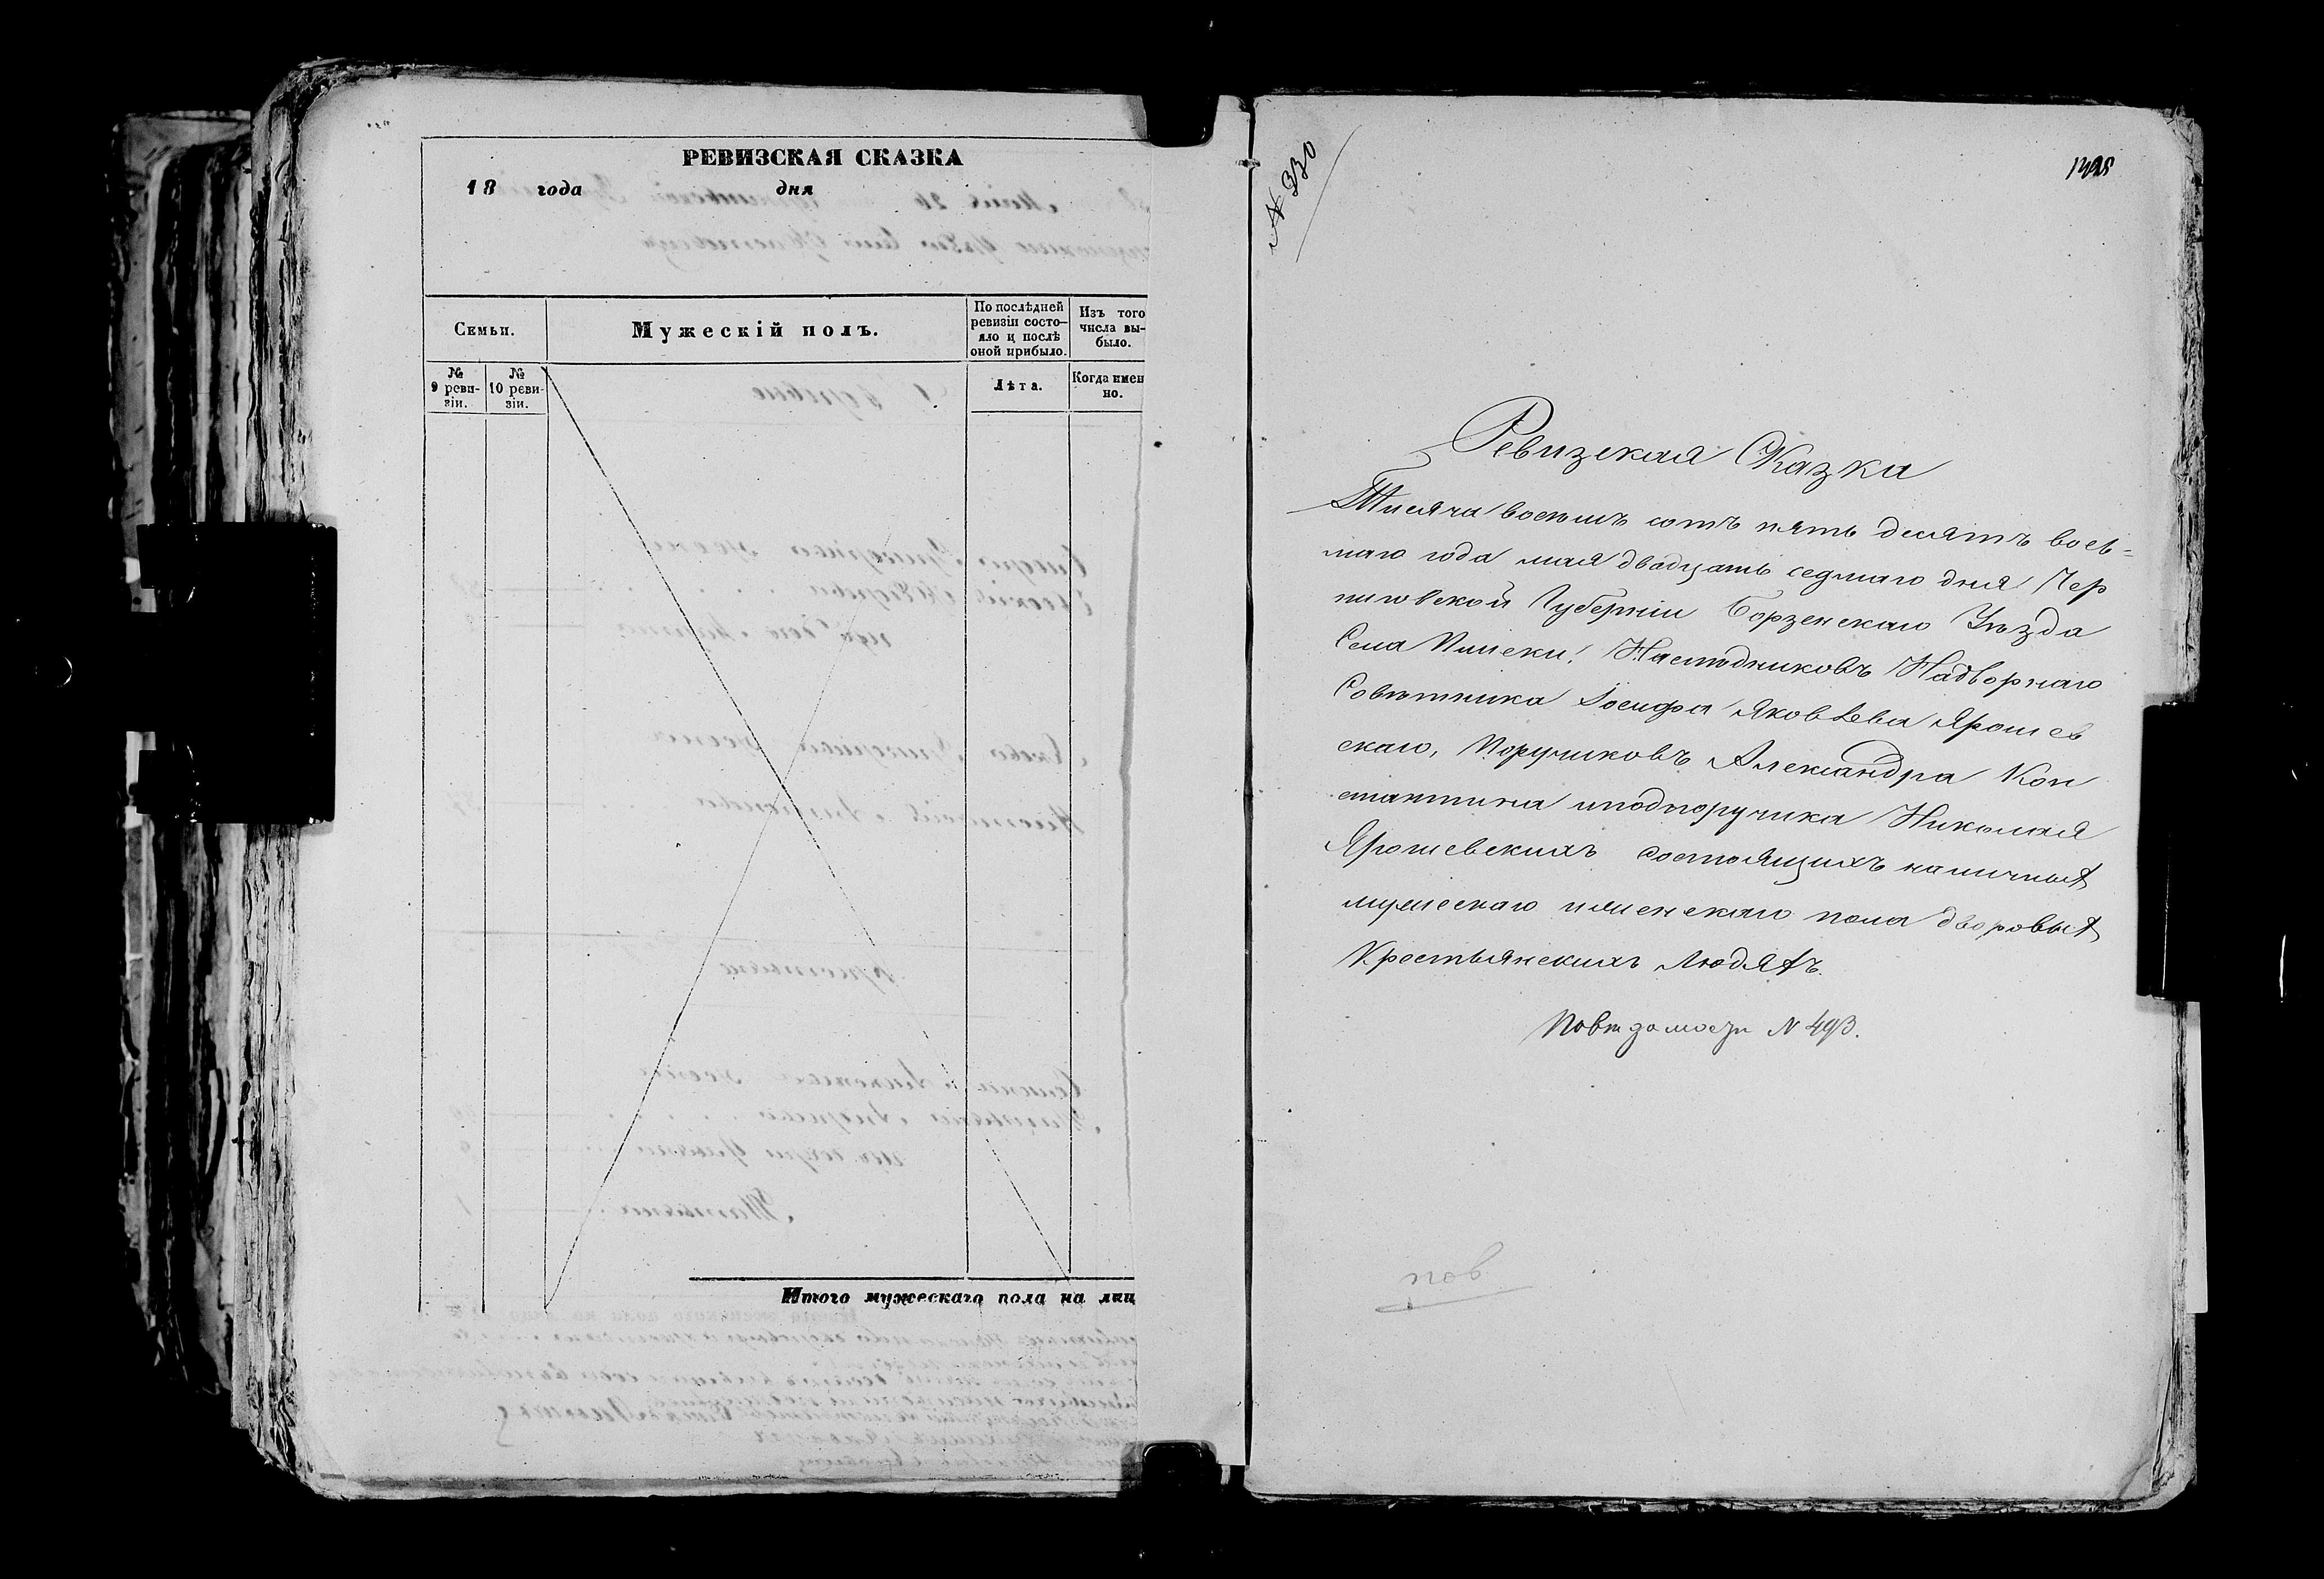 РЕВИЗСКАЯ СКАЗКА
18 года дня
Семьи.
Мужескій полъ.
По послѣдней ревизіи состо-яло и послѣ оной прибыло.
Изъ того числа вы-было.
№ 9 реви-зіи.
№ 10 реви-зіи.
Лѣта.
Когда имен но.
Итого мужескаго пола на лиц
№ 330
Ревизская Сказка
Тысяча восемь сотъ пять десятъ вось=
маго года мая двадцать седмаго дня Чер
ниговской Губерніи Борзенскаго Уѣзда
Села Плиски. Наслѣдниковъ Надворнаго
Совѣтника Іосифа Яковлева Ярошев
скаго, Поручиковъ Александра Кон
стантина иподпоручика Николая
Ярошевскихъ состоящихъ наличныхъ
мужескаго иженскаго пола дворовыхъ
Крестьянскихъ Людяхъ.
Повѣдомости N 493.
пов